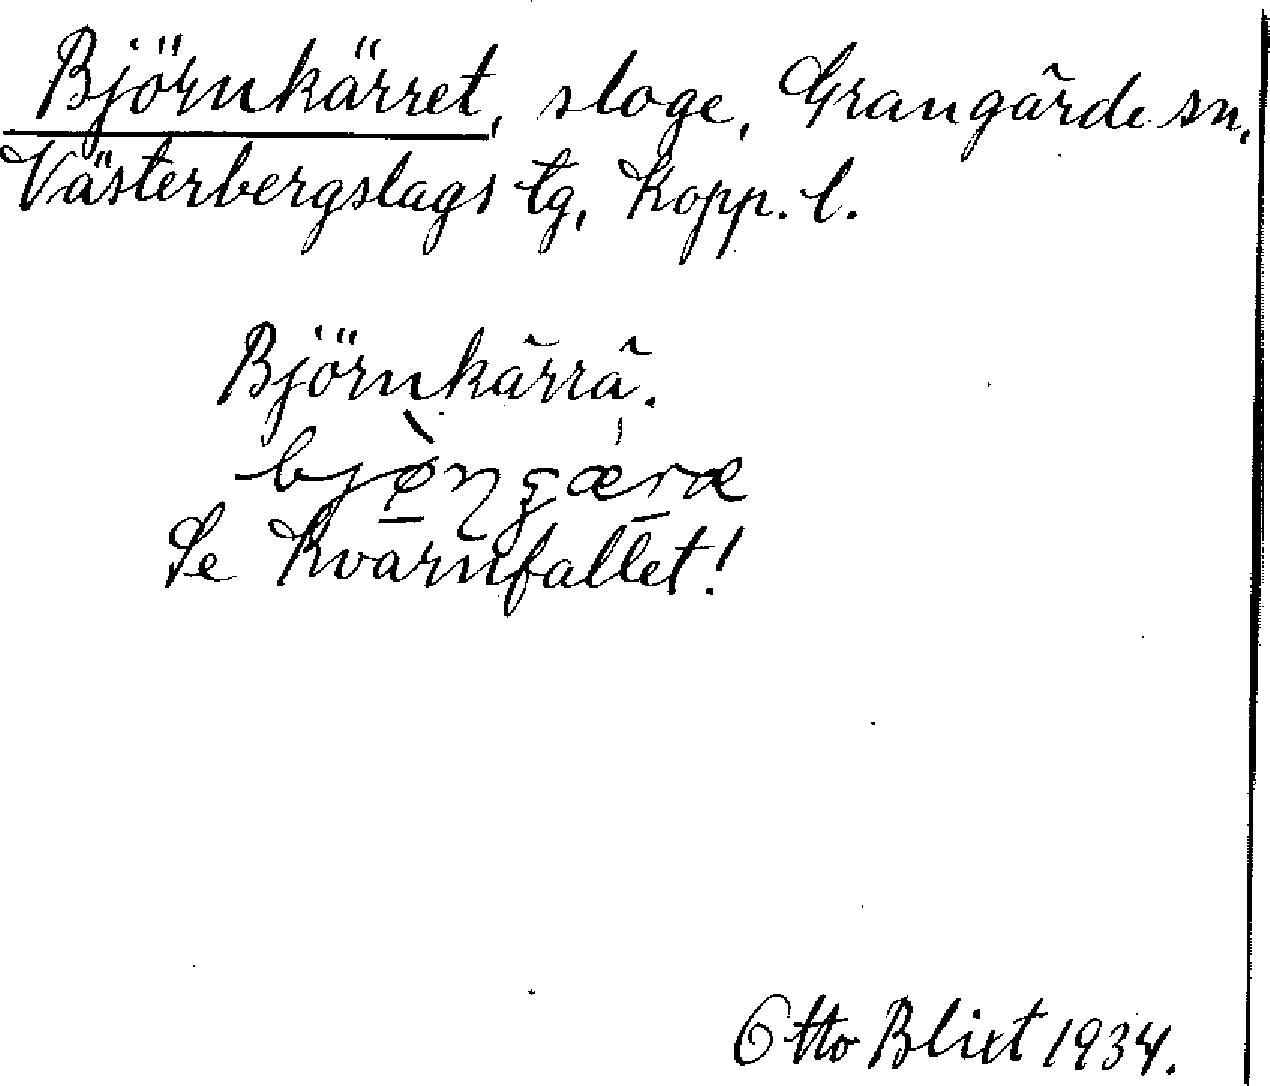 Björnkärret, sloge, Grangärde sn,
Västerbergslags tg, Kopp. l.
Björnkärrä.
Se Kvarnfallet!
Otto Blixt 1934.